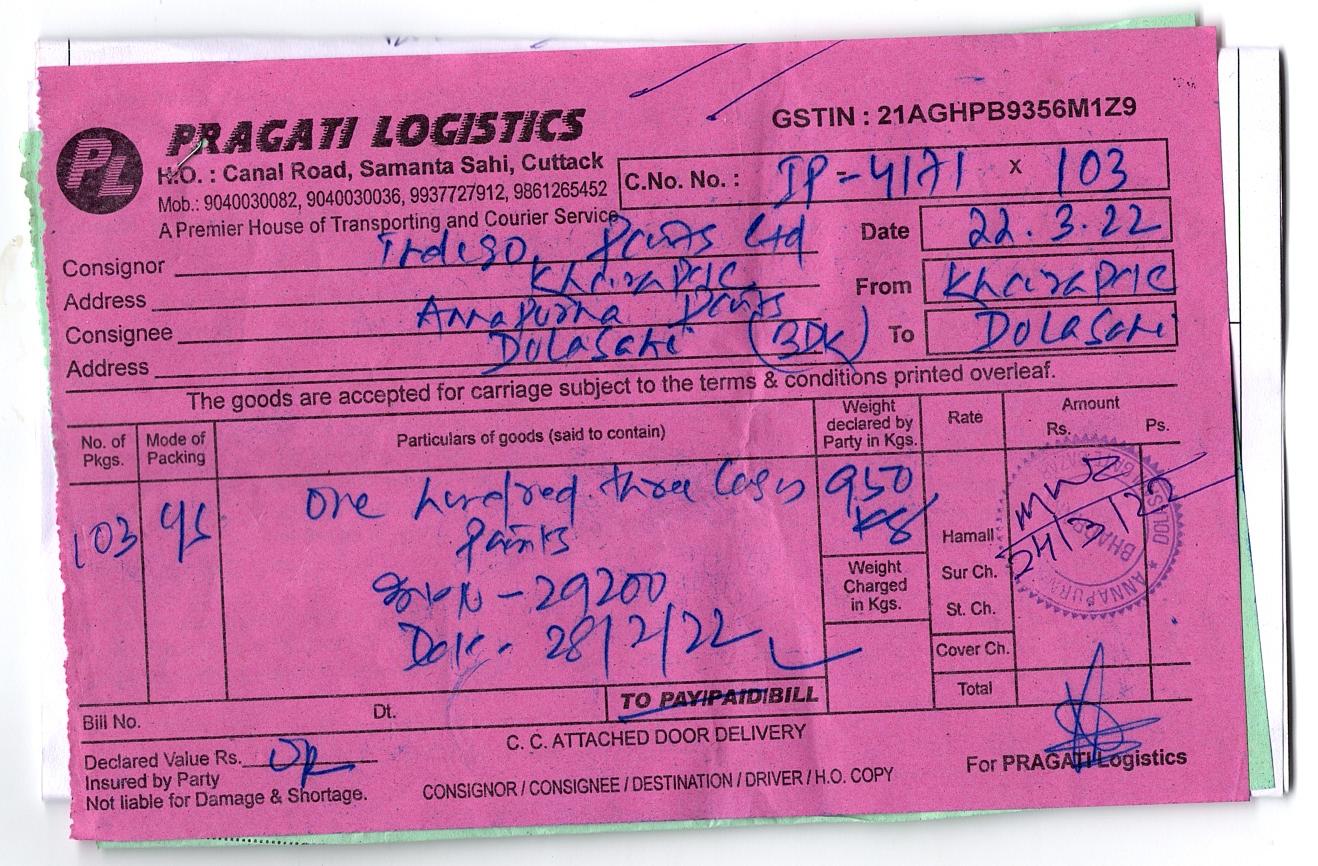 PL PRAGATI LOGISTICS
GSTIN : 21AGHPB9356M1Z9
H.O. : Canal Road, Samanta Sahi, Cuttack
Mob.: 9040030082, 9040030036, 9937727912, 9861265452
A Premier House of Transporting and Courier Service
C.No. No. : IP-4171 x 103
Date 22.3.22
Consignor Indigo Paints Ltd
Address
From
Consignee Annapurna Paints
To Dolasahi
Address Dolasahi (BDK)
The goods are accepted for carriage subject to the terms & conditions printed overleaf.
No. of Pkgs. Mode of Packing Particulars of goods (said to contain) Weight declared by Party in Kgs. Rate Amount Rs. Ps.
103 One hundred three Cases 950 KG
Paints
29200
Date - 28/2/22
Weight Charged in Kgs.
Hamali
Sur Ch.
St. Ch.
Cover Ch.
Total
24/3/22
ANNAPURNA
Bill No. Dt. TO PAY/PAID/BILL
C. C. ATTACHED DOOR DELIVERY
Declared Value Rs.
Insured by Party
Not liable for Damage & Shortage.
CONSIGNOR / CONSIGNEE / DESTINATION / DRIVER / H.O. COPY
For PRAGATI Logistics